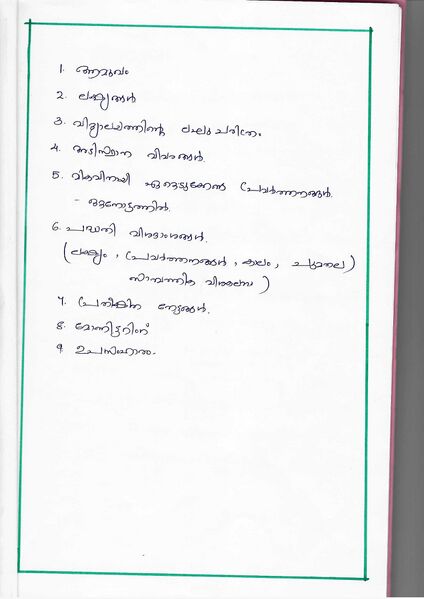 1. ആമുഖം
2. ലക്ഷ്യങ്ങൾ
3. വിദ്യാലയത്തിന്റെ ലഘു ചരിത്രം.
4. അടിസ്ഥാന വിവരങ്ങൾ.
5. മികവിനായി ഏറ്റെടുക്കേണ്ട പ്രവർത്തനങ്ങൾ.
- ഒറ്റനോട്ടത്തിൽ.
6. പദ്ധതി വിശദാംശങ്ങൾ.
(ലക്ഷ്യം, പ്രവർത്തനങ്ങൾ, കാലം, ചുമതല)
സാമ്പത്തിക വിശകലനം)
7. പ്രതീക്ഷിത നേട്ടങ്ങൾ.
8. മോണിട്ടറിങ്
9. ഉപസംഹാരം.